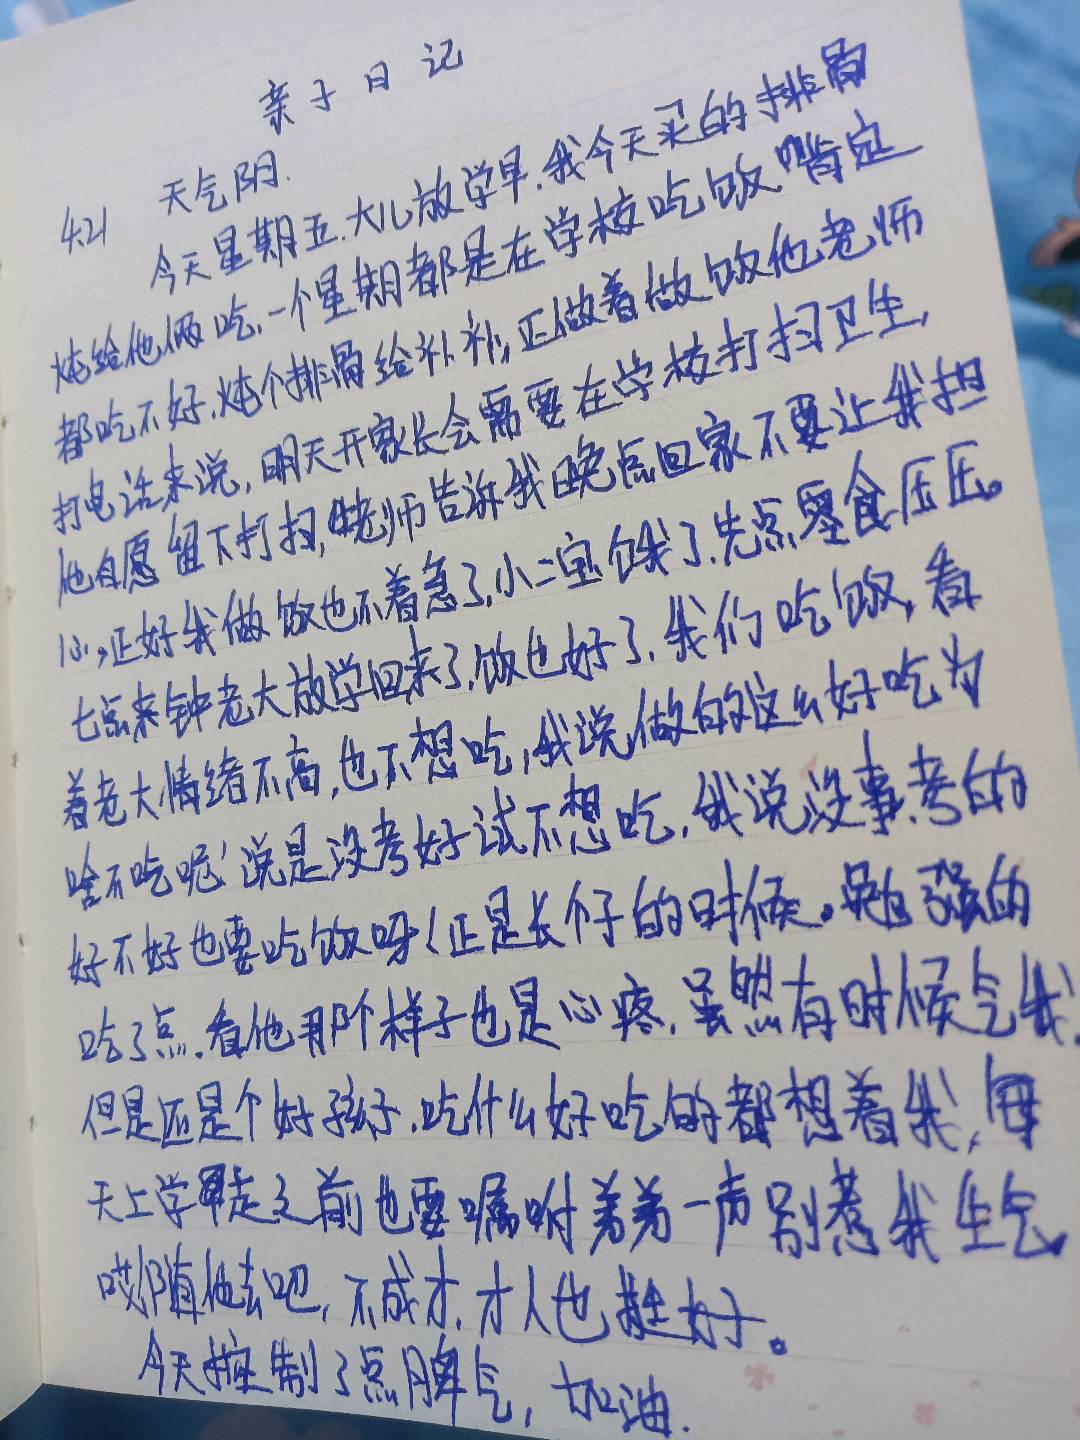 亲子日记
4.21 天气阴.
今天星期五.大儿放学早.我今天买的排骨
炖给他俩吃.一个星期都是在学校吃饭 肯定
都吃不好.炖个排骨给补补,正做着做饭他老师
打电话来说,明天开家长会需要在学校打扫卫生,
他自愿留下打扫,老师告诉我晚点回家不要让我担
心,正好我做饭也不着急了,小二宝饿了.先点零食压压。
七点来钟老大放学回来了.饭也好了.我们吃饭,看
着老大情绪不高,也不想吃,我说做的这么好吃为
啥不吃呢!说是没考好试不想吃,我说没事.考的
好不好也要吃饭呀(正是长个子的时候。勉强的
吃了点.看他那个样子也是心疼.虽然有时候气我.
但是还是个好孩子.吃什么好吃的都想着我,每
天上学走之前也要嘱咐弟弟一声别惹我生气
哎随他去吧,不成才.才人也挺好。
今天控制了点脾气,加油.